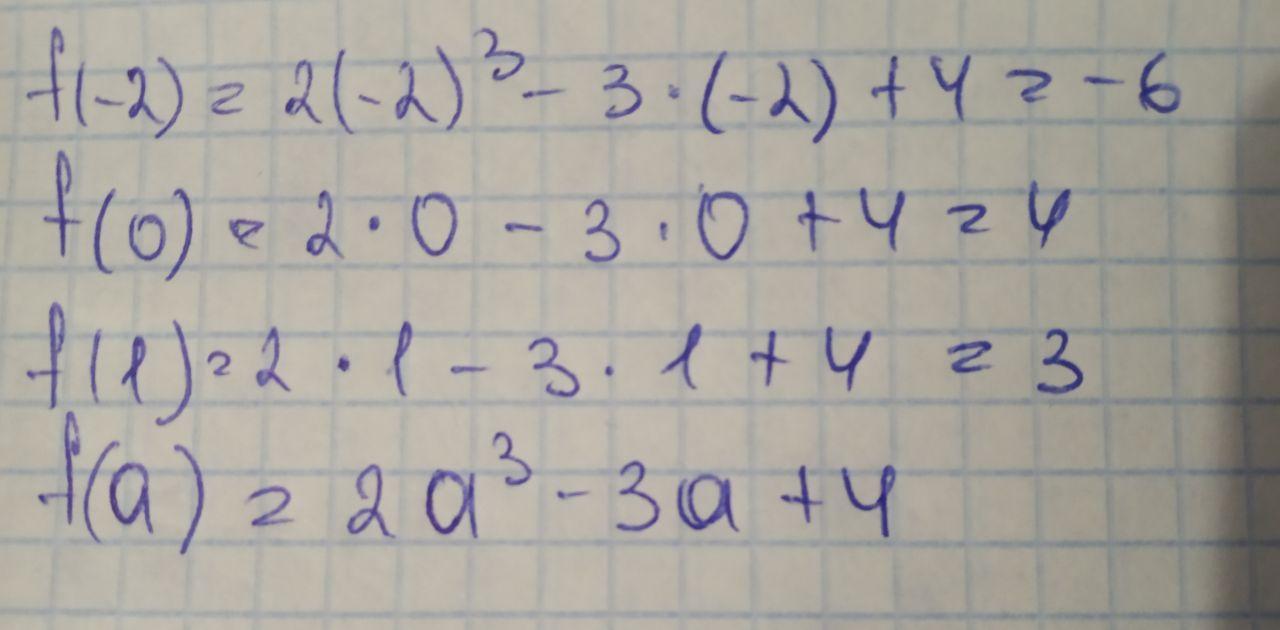 f(-2) = 2(-2)³ - 3·(-2) + 4 = -6
f(0) = 2·0 - 3·0 + 4 = 4
f(1) = 2·1 - 3·1 + 4 = 3
f(a) = 2a³ - 3a + 4